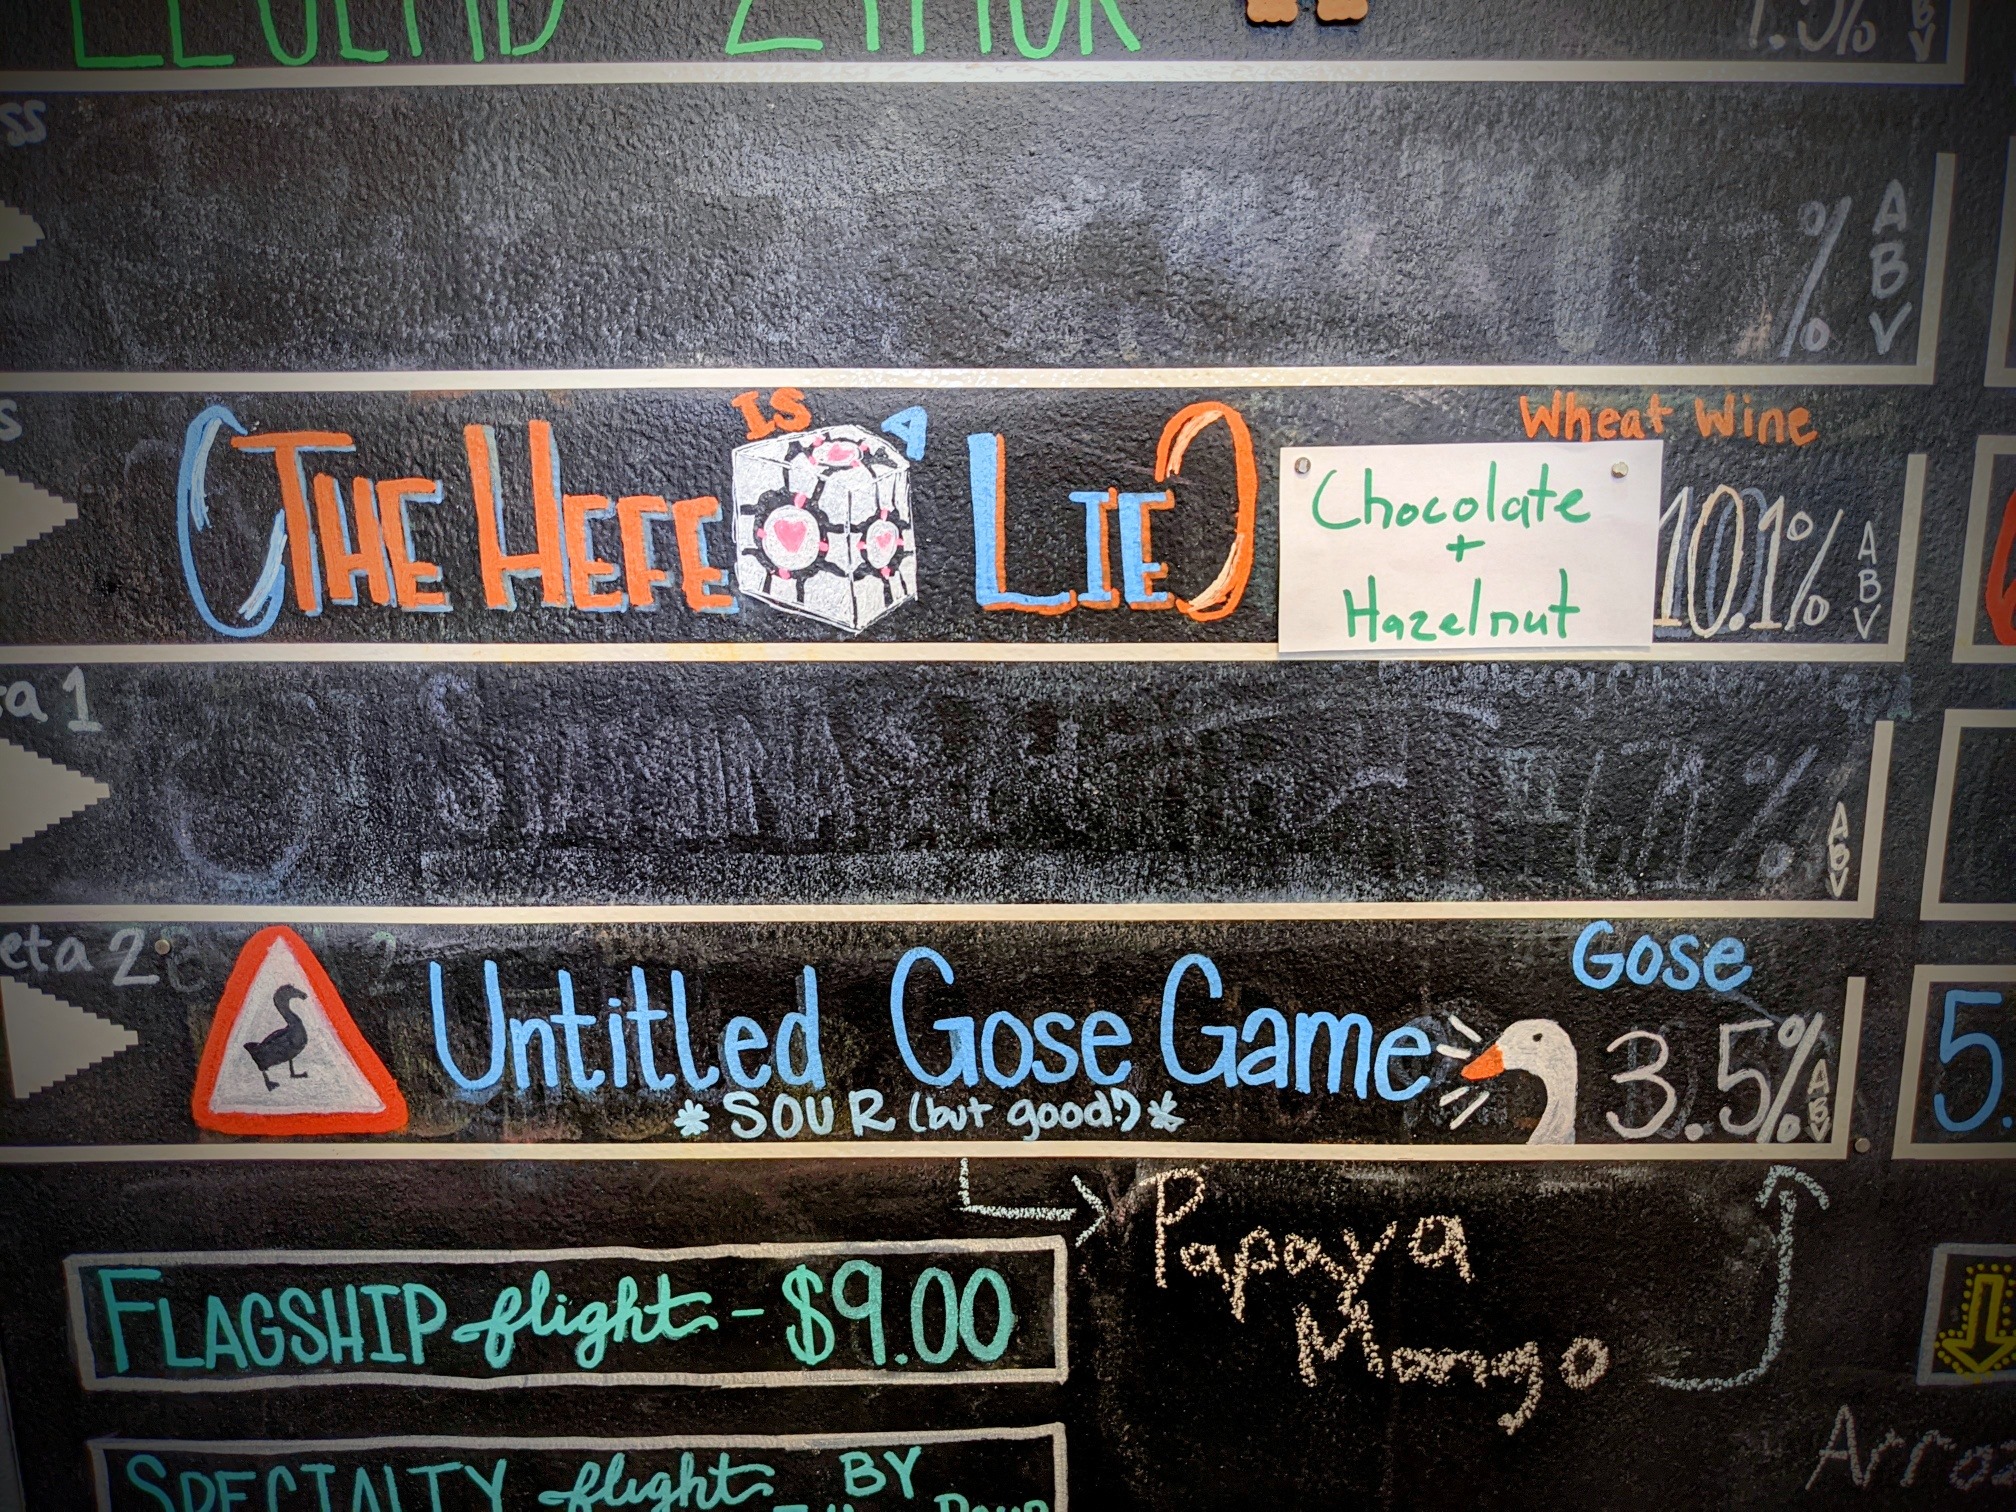 ABV
ss
% ABV
s
THE HEFE IS A LIE
Wheat Wine
Chocolate
+
Hazelnut
10.1% ABV
a 1
% ABV
eta 2
Untitled Gose Game
*SOUR (but good!)*
Gose
3.5% ABV
5.
Papaya
Mango
FLAGSHIP flight - $9.00
SPECIALTY flight BY